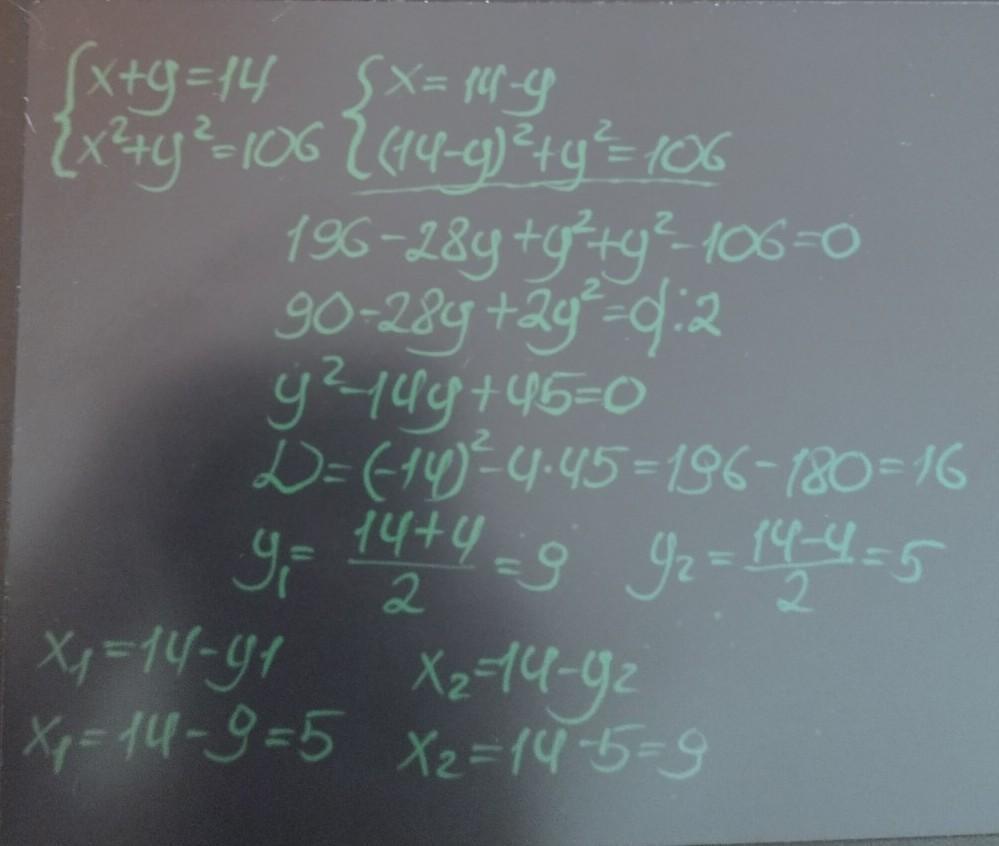 {x+y=14 {x=14-y
{x²+y²=106 {(14-y)²+y²=106
196-28y+y²+y²-106=0
90-28y+2y²=0|:2
y²-14y+45=0
D=(-14)²-4·45=196-180=16
y₁=(14+4)/2=9 y₂=(14-4)/2=5
x₁=14-y1 x₂=14-y₂
x₁=14-9=5 x₂=14-5=9